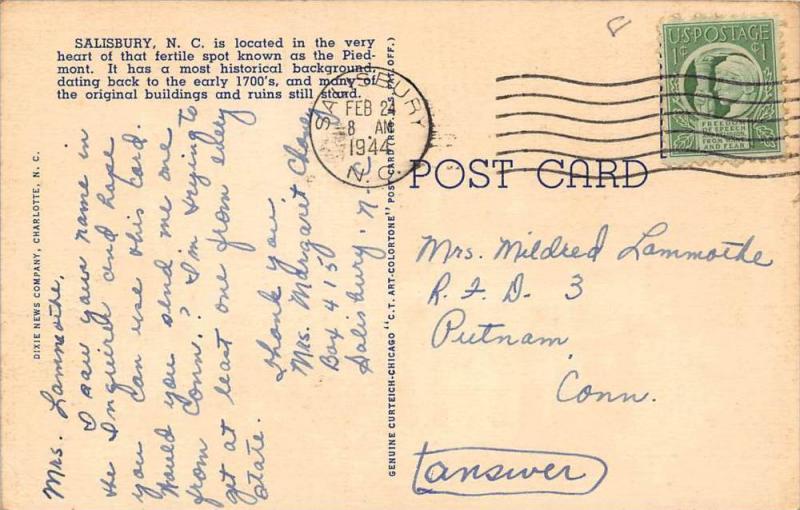 SALISBURY, N. C. is located in the very
heart of that fertile spot known as the Pied-
mont. It has a most historical background,
dating back to the early 1700's, and many of
the original buildings and ruins still stand.
Mrs. Lammothe,
I saw your name in
the Inquirer and hope
you can use this card.
Would you send me one
from Conn.? I'm trying to
get at least one from every
state.
Thank you,
Mrs. Margaret
Box 415
Salisbury, N.
DIXIE NEWS COMPANY, CHARLOTTE, N. C.
GENUINE CURTEICH-CHICAGO "C.T. ART-COLORTONE" POST CARD (REG. U.S. PAT. OFF.)
SALISBURY
FEB 24
8 AM
1944
N.C.
U.S. POSTAGE
1¢ 1¢
FREEDOM
OF SPEECH
FROM WANT
AND FEAR
POST CARD
Mrs. Mildred Lammothe
R. F. D. 3
Putnam
Conn.
answer